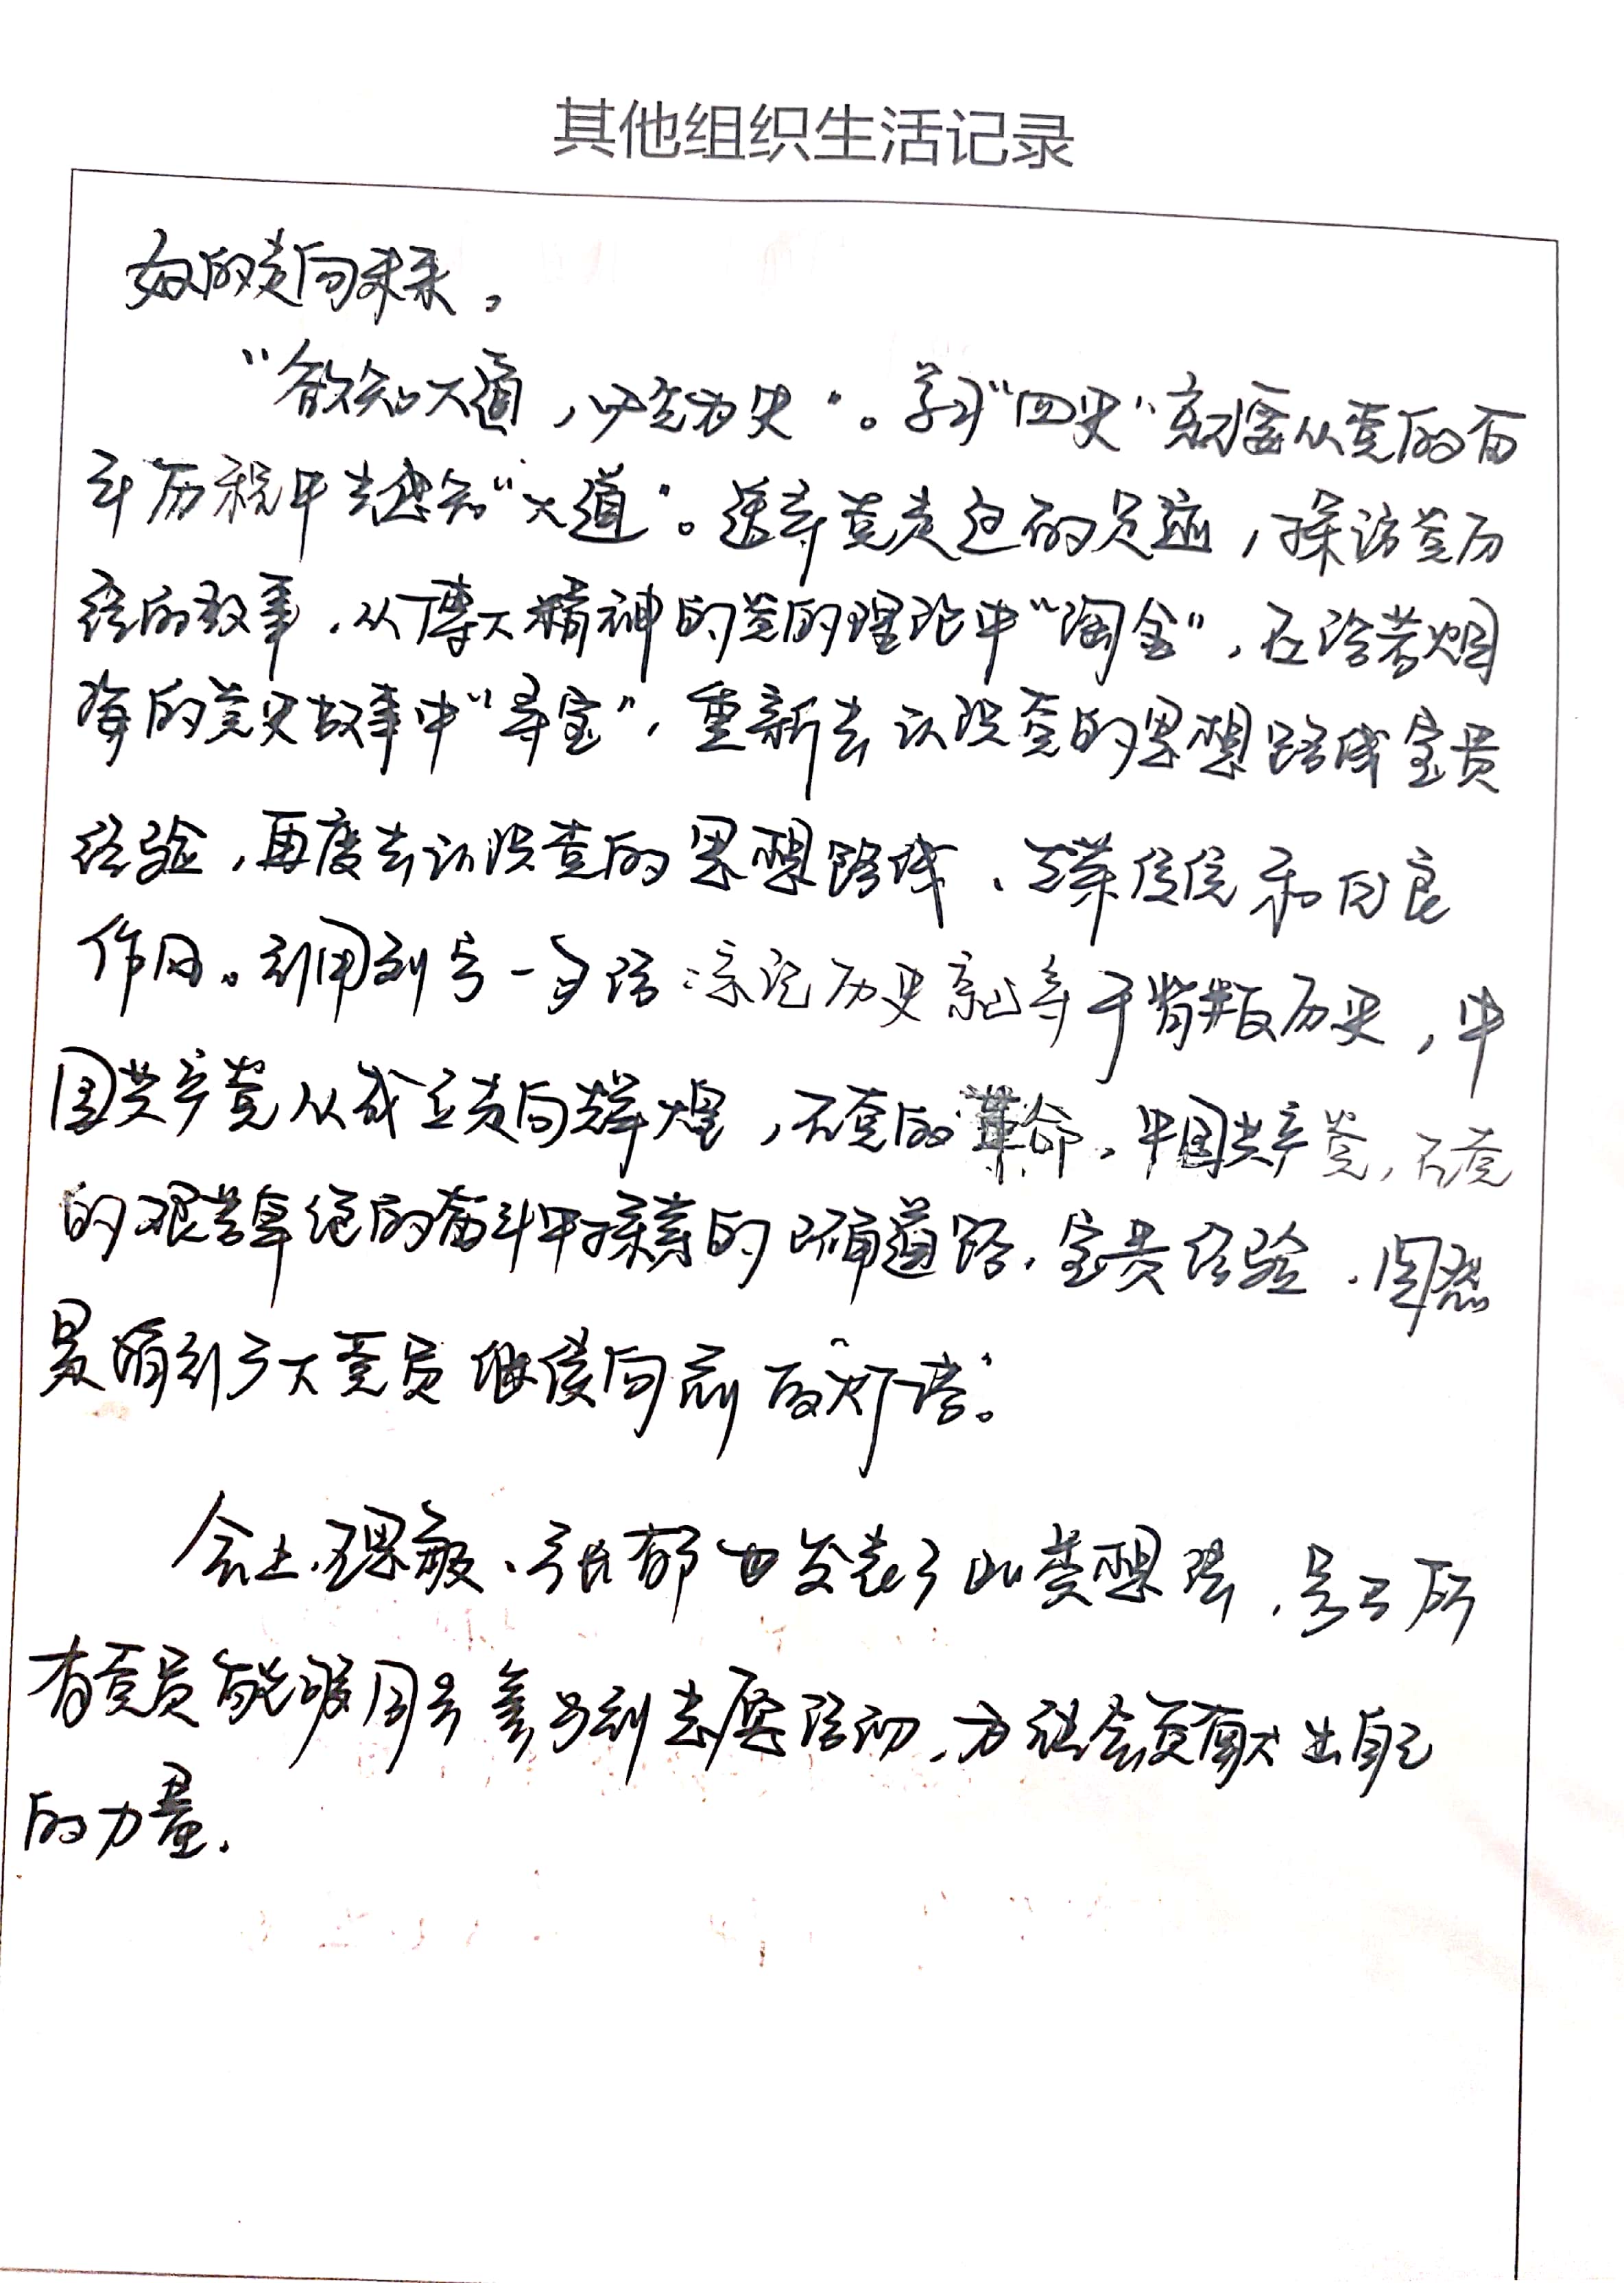 其他组织生活记录
好的走向未来。
“欲知大道，必先为史”。学习“四史”就要从党的百
年历程中去感知“大道”。追寻党走过的足迹，探访党历
经的故事，从博大精神的党的理论中“淘金”，在浩若烟
海的党史故事中“寻宝”，重新去认识党的思想路线宝贵
经验，再度去认识党的思想路线、优良
作风。引用到另一句话：忘记历史就等于背叛历史，中
国共产党从成立走向辉煌，不变的革命，中国共产党，不变
的艰苦卓绝的奋斗中探索的正确道路，宝贵经验，固然
是指引广大党员继续向前的“灯塔”。
会上，王思敏、张郁也发表了此类想法，号召所
有党员能够同步参与到志愿活动，为社会贡献出自己
的力量.